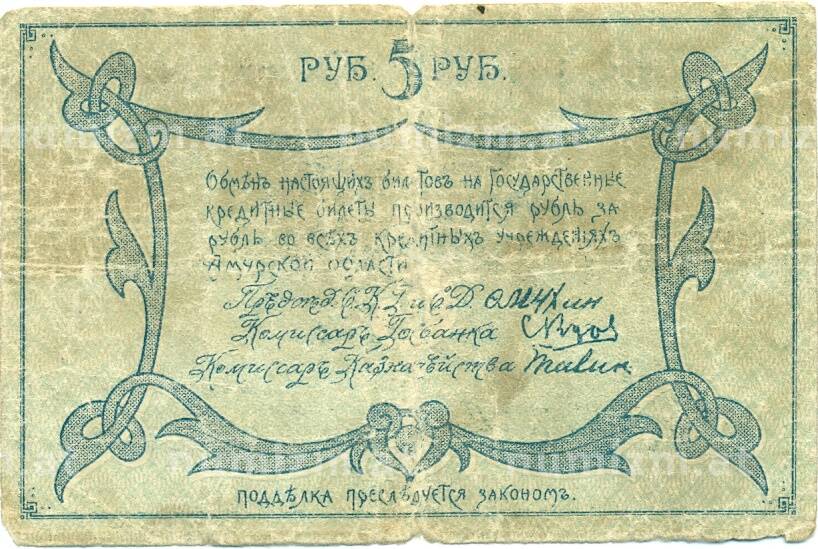 РУБ. 5 РУБ.
Обмѣнъ настоящихъ билетовъ на Государственные
кредитные билеты производится рубль за
рубль во всѣхъ кредитныхъ учрежденіяхъ
Амурской области
Комиссаръ Госбанка
Комиссаръ Казначейства
ПОДДѢЛКА ПРЕСЛѢДУЕТСЯ ЗАКОНОМЪ.